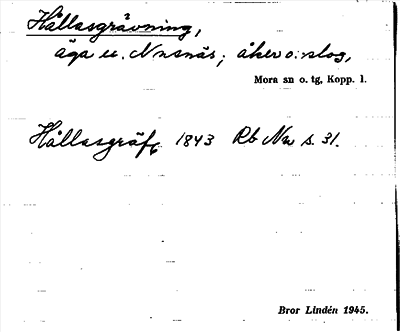 Hållasgrävning,
äga u. Nusnäs; åker o. slog,
Mora sn o. tg, Kopp. l.
Hållasgräf 1843 Rb Nu s. 31.
Bror Lindén 1945.